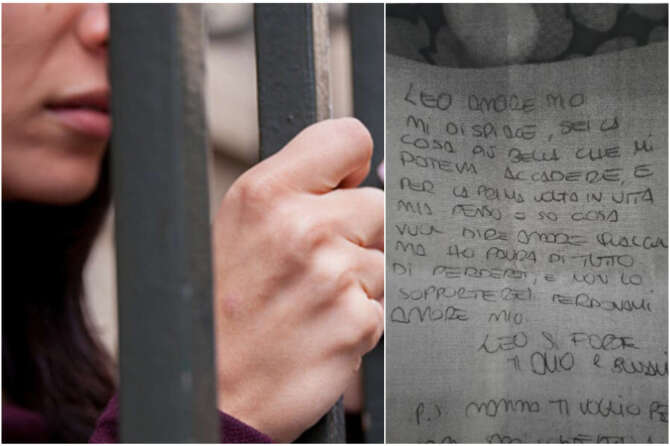 LEO AMORE MIO
MI DISPIACE, SEI LA
COSA PIÙ BELLA CHE MI
POTEVA ACCADERE, E
PER LA PRIMA VOLTA IN VITA
MIA PENSO E SO COSA
VUOL DIRE AMORE QUALCU
MA HO PAURA DI TUTTO
DI PERDERTI, E NON LO
SOPPORTEREI PERDONAMI
AMORE MIO.
LEO SII FORTE
TI AMO E
P.S NONNA TI VOGLIO